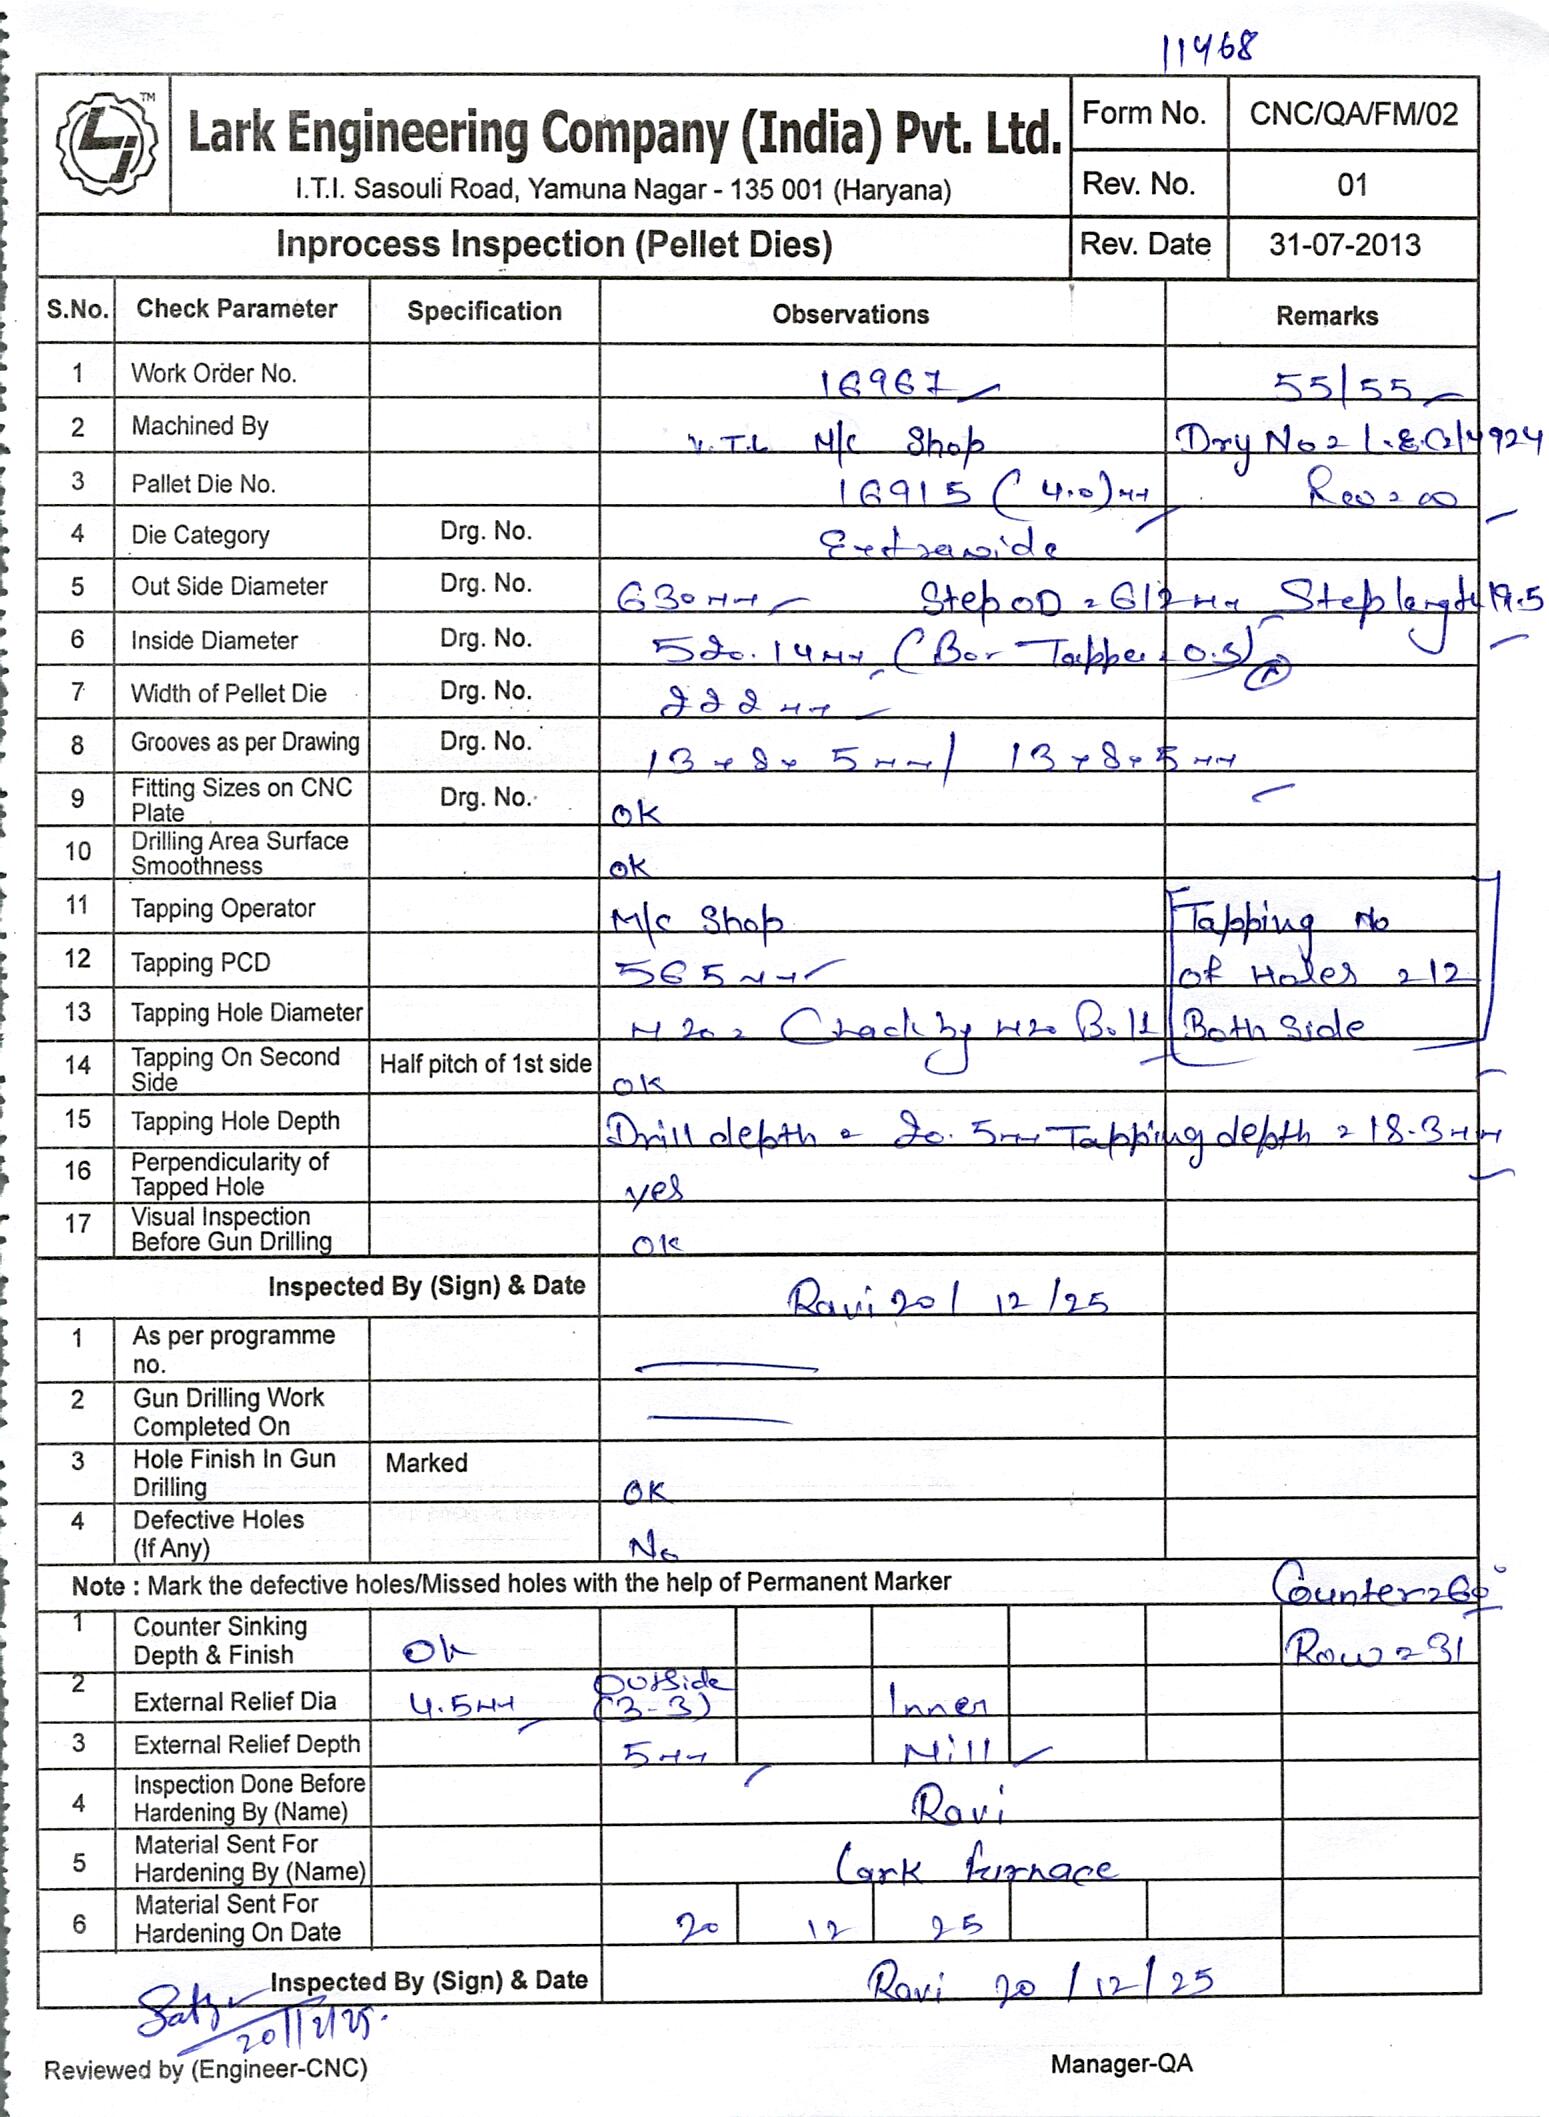 11468
TM
Lark Engineering Company (India) Pvt. Ltd.
I.T.I. Sasouli Road, Yamuna Nagar - 135 001 (Haryana)
Form No. CNC/QA/FM/02
Rev. No. 01
Inprocess Inspection (Pellet Dies) Rev. Date 31-07-2013
S.No. Check Parameter Specification Observations Remarks
1 Work Order No. 16967 55/55
2 Machined By V.T.L M/c Shop Dry No = L.E.C/4924
3 Pallet Die No. 16915 (4.0)mm Rev = 00
4 Die Category Drg. No. Extrawide
5 Out Side Diameter Drg. No. 630mm Step OD = 612mm Step length 19.5
6 Inside Diameter Drg. No. 520.14mm (Bor Tapper = 0.5) A
7 Width of Pellet Die Drg. No. 222mm
8 Grooves as per Drawing Drg. No. 13 x 8 x 5mm / 13 x 8 x 5mm
9 Fitting Sizes on CNC Plate Drg. No. OK
10 Drilling Area Surface Smoothness OK
11 Tapping Operator M/c Shop Tapping No
12 Tapping PCD 565mm of Holes = 12
13 Tapping Hole Diameter M20 = Chack by M20 Bolt Both Side
14 Tapping On Second Side Half pitch of 1st side OK
15 Tapping Hole Depth Drill depth = 20.5mm Tapping depth = 18.3mm
16 Perpendicularity of Tapped Hole yes
17 Visual Inspection Before Gun Drilling OK
Inspected By (Sign) & Date Ravi 20/12/25
1 As per programme no.
2 Gun Drilling Work Completed On
3 Hole Finish In Gun Drilling Marked OK
4 Defective Holes (If Any) No
Note : Mark the defective holes/Missed holes with the help of Permanent Marker Counter = 60°
1 Counter Sinking Depth & Finish Ok Row = 31
2 External Relief Dia 4.5mm Outside (3-3) Inner
3 External Relief Depth 5mm Nill
4 Inspection Done Before Hardening By (Name) Ravi
5 Material Sent For Hardening By (Name) Lark furnace
6 Material Sent For Hardening On Date 20 12 25
Inspected By (Sign) & Date Ravi 20/12/25
20/12/25.
Reviewed by (Engineer-CNC) Manager-QA